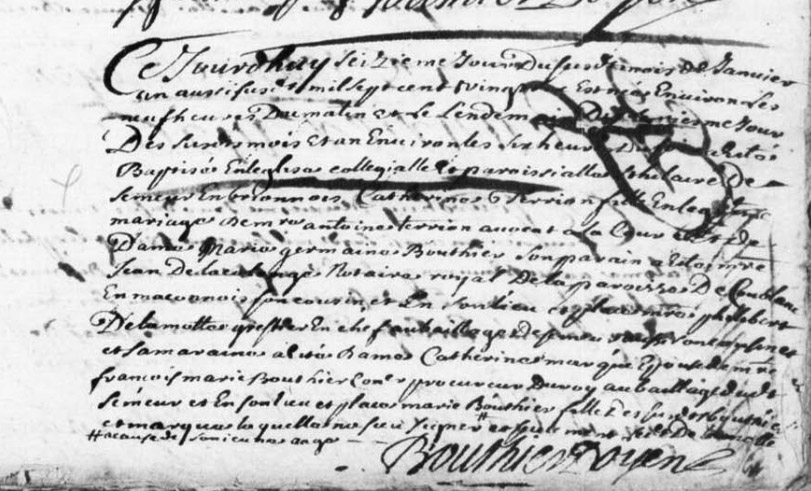 Ce Jourdhuy Seizieme Jour Du susd mois de Janvier
an aussi susd mil sept cent vingt Est nee Environ Les
neuf heures Du matin et Le Lendemain Dix Jour
Des susds mois et an Environ les six heures Du a Eté
Baptisée En leglise collegialle & paroissialle St hilaire De
semeur En brionnois Catherine Terrion fille En leg
mariage De mre antoine terrion avocat a La Cour et De
Dame Marie germaine Bouthier son parain a été mre
Jean Delacelonge Notaire royal De la paroisse De Coublanc
En maconnois son cousin et En son lieu et place mre philibert
Delamotte greffier En chef au baillage de semeur
et sa maraine a été Dame Catherine marque Epouse de mre
francois marie Bouthier Coner procureur du roy au baillage dudt
semeur et En son lieu et place marie Bouthier fille Desd srs Bouthier
et marque laquelle na sceu signer et led sr Delamotte
# a cause de son jeune aage
Bouthier Doyen